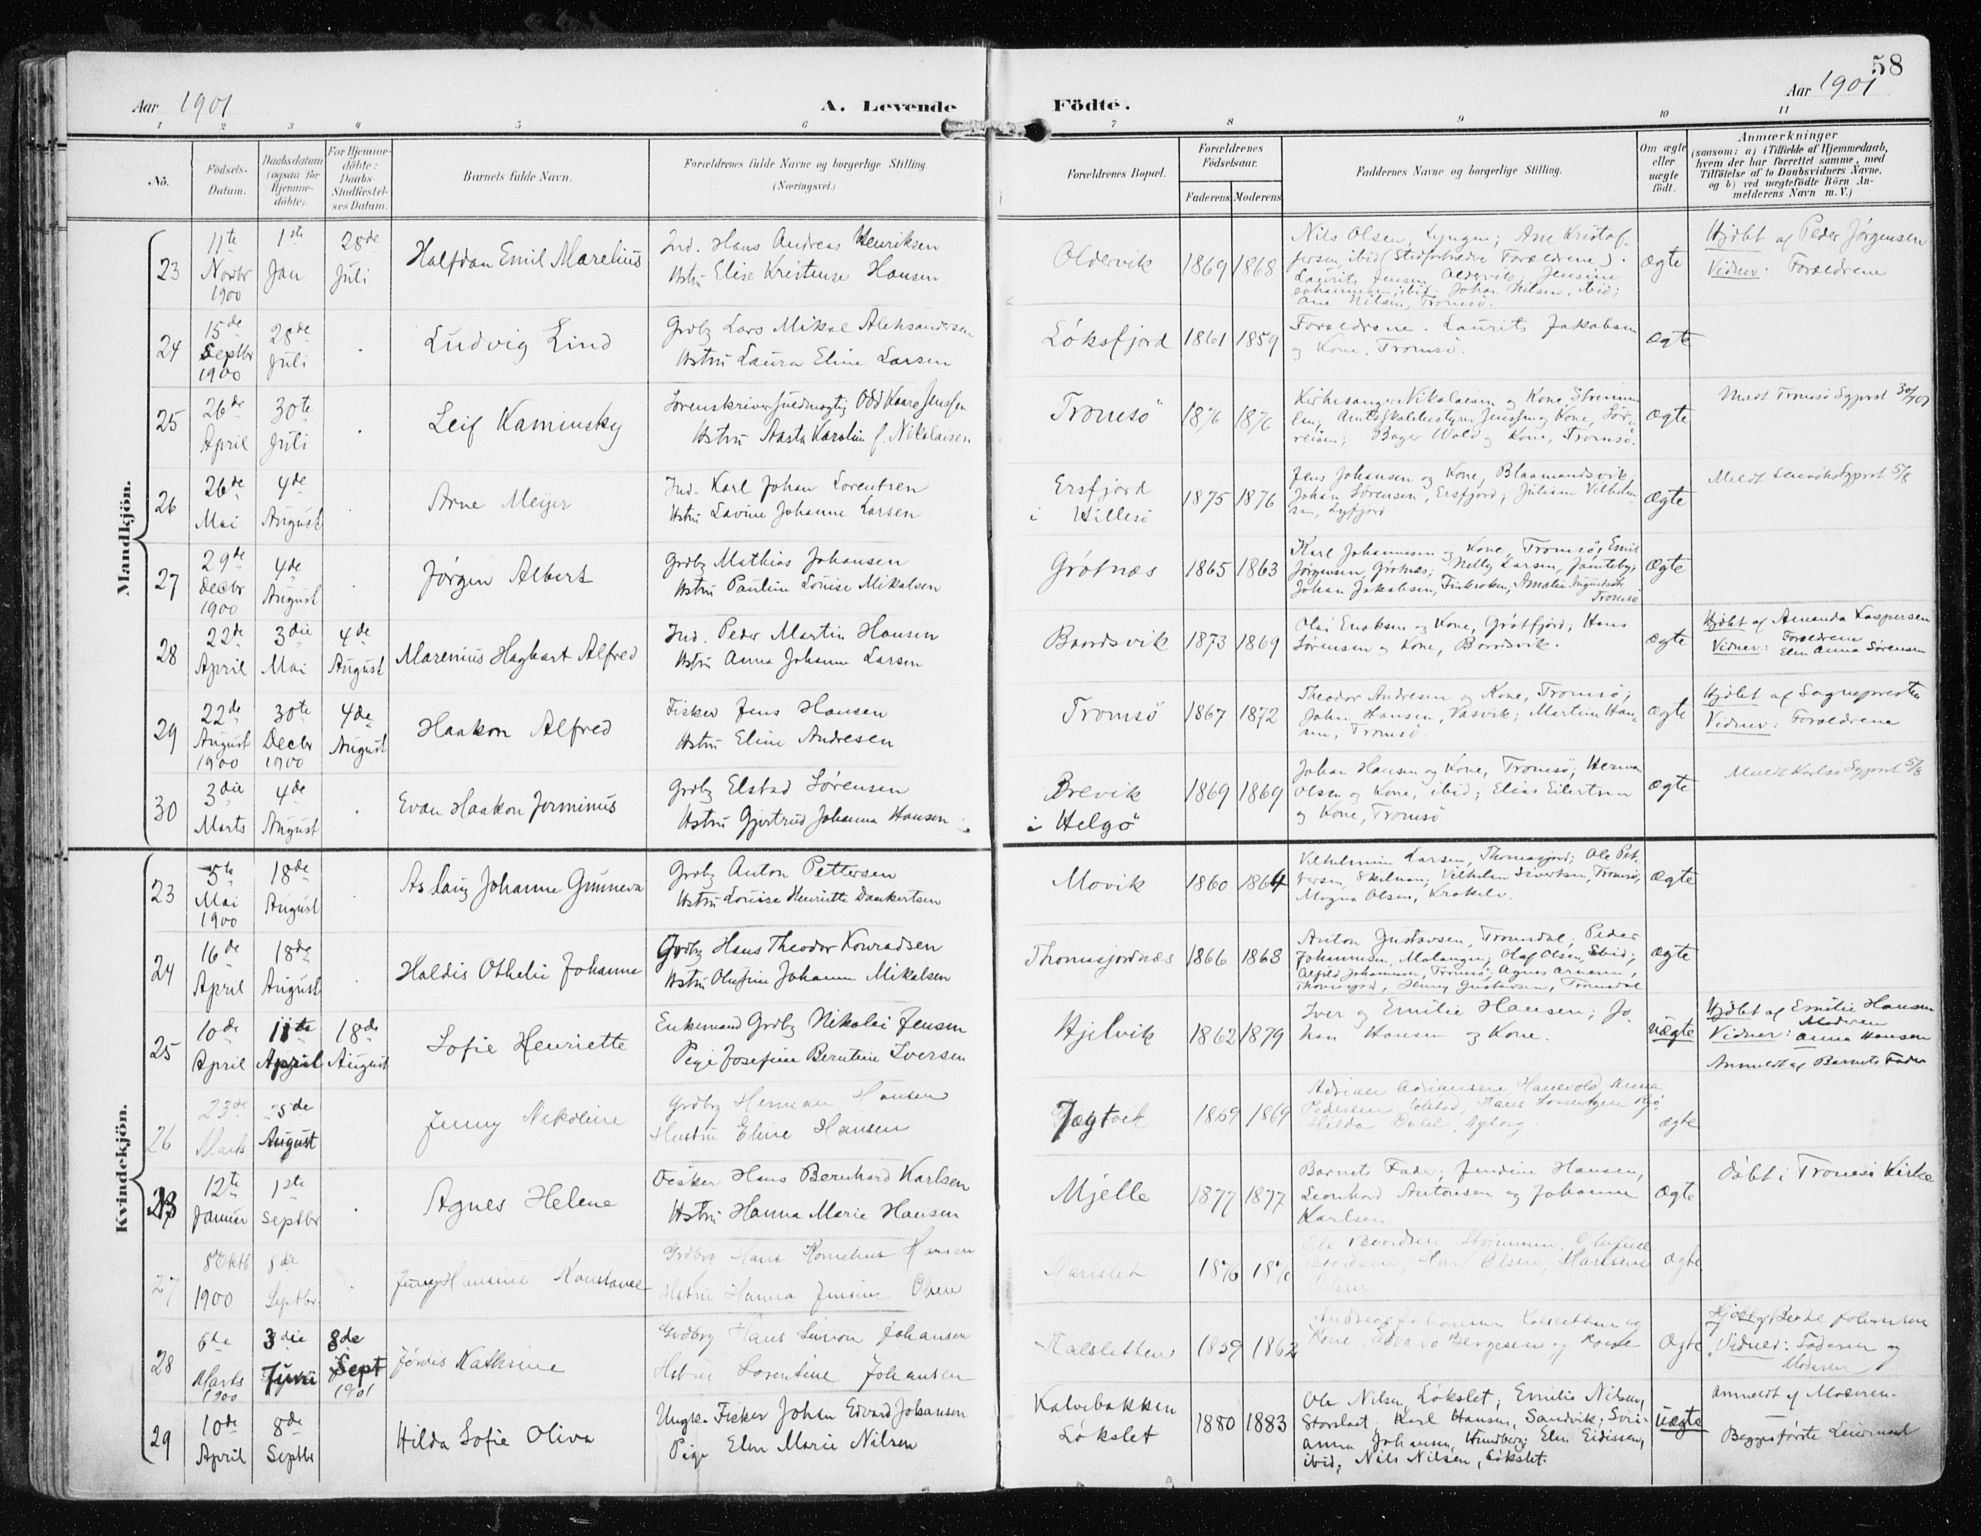 58
Aar 1901
A. Levende
Födte.
Aar 1901
1 2 3 4 5 6 7 8 9 10 11
No.
Födsels-Datum.
Daabsdatum (ogsaa for Hjemme-döbte).
For Hjemme-döbte: Daabs-Stadfæstel-ses Datum.
Barnets fulde Navn.
Forældrenes fulde Navne og borgerlige Stilling (Næringsvei.)
Forældrenes Bopæl.
Forældrenes Födselsaar.
Faderens Moderens
Faddernes Navne og borgerlige Stilling.
Om ægte eller uægte födt.
Anmærkninger
(saasom: a) i Tilfælde af Hjemmedaab,
hvem der har forrettet samme, med
Tilföielse af to Daabsvidners Navne,
og b) ved uægtefödte Börn An-
melderens Navn m. V.)
Mandkjön.
23
11te Novbr 1900
1ste Jan
28de Juli
Halfdan Emil Marelius
Ind. Hans Andreas Henriksen
Hstru Elise Kristense Hansen
Oldervik
1869 1868
Nils Olsen, Lyngen; Ane Kristof-
fersen, ibid (Stedfortrædre Forældrene).
Laurits Jensen, Oldervik; Jensine
Johannesen, ibid; Johan Nilsen, ibid;
Ane Nilsen, Tromsø.
ægte
Hjdbt af Peder Jørgensen
Vidner: Forældrene
24
15de Septbr 1900
28de Juli
Ludvig Lind
Grdbg Lars Mikal Aleksandersen
Hstru Laura Eline Larsen
Løksfjord
1861 1859
Forældrene. Laurits Jakobsen
og Kone, Tromsø.
ægte
25
26de April
30te Juli
Leif Kaminsky
Sorenskriverfuldmægtig Odd Kaare Jenssen
Hstru Aasta Karoline f. Nikolaisen
Tromsø
1876 1876
Kirkesanger Nikolaisen og Kone, Strømmen
Jenssen og Kone, Sør-
reisen; Bager Wold og Kone, Tromsø.
ægte
Meldt Tromsø Sgprst 30/7 01
26
26de Mai
4de August
Arne Meyer
Ind. Karl Johan Lorentsen
Hstru Lavine Johanne Larsen
Ersfjord
i Hillesø
1875 1876
Jens Johansen og Kone, Blaamandsvik,
Johan Sørensen, Ersfjord; Juliane Vilhelm-
sen, Lyfjord.
ægte
Meldt Sgprst 5/8
27
29de Decbr 1900
4de August
Jørgen Albert
Grdbg Mathias Johansen
Hstru Pauline Louise Mikalsen
Grøtnæs
1865 1863
Karl Johannesen og Kone, Tromsø; Emil
Jørgensen, Grøtnæs; Nelly Larsen, Jamteby;
Johan Jakobsen, Finkroken, Amalie Augustsen
Tromsø
ægte
28
22de April
3die Mai
4de August
Marenius Hagbart Alfred
Ind. Peder Martin Hansen
Hstru Anna Johanne Larsen
Baardsvik
1873 1869
Olai Enoksen og Kone, Grøtfjord, Hans
Sørensen og Kone, Baardsvik.
ægte
Hjdbt af Amanda Kaspersen
Vidner: Forældrene
Elen Anna Sørensen
29
22de August 1900
30te Decbr 1900
4de August
Haakon Alfred
Fisker Jens Hansen
Hstru Eline Andresen
Tromsø
1867 1872
Theodor Andresen og Kone, Tromsø;
Johan Hansen, Vasvik; Martin Han-
sen, Tromsø.
ægte
Hjdbt af Sognepresten
Vidner: Forældrene
30
3die Marts
4de August
Evan Haakon Jorminus
Grdbg Elstad Sørensen
Hstru Gjertrud Johanna Hansen
Brevik
i Helgø
1869 1869
Johan Hansen og Kone, Tromsø; Herman
Olsen og Kone, ibid; Elias Eilertsen
og Kone, Tromsø
ægte
Meldt Karlsø Sgprst 5/8
Kvindekjön.
23
5te Mai 1900
18de August
Aslaug Johanne Gunneva
Grdbg Anton Pettersen
Hstru Louise Henriette Dankertsen
Movik
1860 1864
Vilhelmine Larsen, Thomasjord; Ole Pet-
tersen, Skilnan; Vilhelm Sivertsen, Tromsø;
Magna Olsen, Krokelv.
ægte
24
16de April
18de August
Haldis Othelie Johanne
Grdbg Hans Theodor Konradsen
Hstru Olufine Johanne Mikalsen
Thomasjordnæs
1866 1868
Anton Gustavsen, Tromdal; Peder
Johannesen, Malangen; Olaf Olsen, ibid;
Alfild Johannesen, Tromsø; Agnes
Thomasjord, Jenny Gustavsen, Tromsdal
ægte
25
10de April
11te April
18de August
Sofie Henriette
Enkemand Grdbg Nikolai Jensen
Pige Josefine Berntine Iversen
Hjelvik
1862 1879
Iver og Emilie Hansen; Jo-
han Hansen og Kone.
uægte
Hjdbt af Emilie Hansen
Vidner: Moderen
Anna Hansen
Anmeldt af Barnets Fader
26
23de Marts
25de August
Jenny Nikoline
Grdbg Herman Hansen
Hustru Eline Hansen
Jægtvik
1859 1869
Adrian Adriansen, Hanevold, Anna
Pedersen Hans Lorentzen
Hilda Dahl, Nyborg
ægte
12te Januar
1ste Septbr
Agnes Helene
Fisker Hans Bernhard Karlsen
Hstru Hanna Marie Hansen
Mjelle
1877 1877
Barnets Fader; Jendine Hansen,
Leonhard Antonsen og Johanne
Karlsen
ægte
døbt i Tromsø Kirke
27
8 Oktb 1900
8de Septbr
Jenny Hansine Konstanse
Grdbg Hans Kornelius Hansen
Hstru Hanna Jensine Olsen
1876 1876
Ole Baardsen Strømmen, Olufine
Baardsen, Karl Olsen, Hansine
Olsen
ægte
28
6de Marts 1900
3die Juni
8de Sept 1901
Jørdis Kathrine
Grdbrg Hans Simon Johansen
Hstru Lorentine Johansen
Kalsletten
1859 1862
Andreas Johansen Kalsletten og
Kone, Bergesen og Kone
ægte
Hjdbt af Berte Johansen
Vidner: Faderen og
Moderen
29
10de April
8de Septbr
Hilda Sofie Oliva
Ungk. Fisker Johan Edvard Johansen
Pige Elen Marie Nilsen
Kalvebakken
Løkslet
1880 1883
Ole Nilsen, Løkslet; Emilie Nilsen,
Storslæt; Karl Hansen, Sandvik; Svi-
anna Johansen, Hundberg; Elen Eidissen,
ibid, Nils Nilsen, Løkslet.
uægte
anmeldt af Moderen.
Begges første Leiermaal